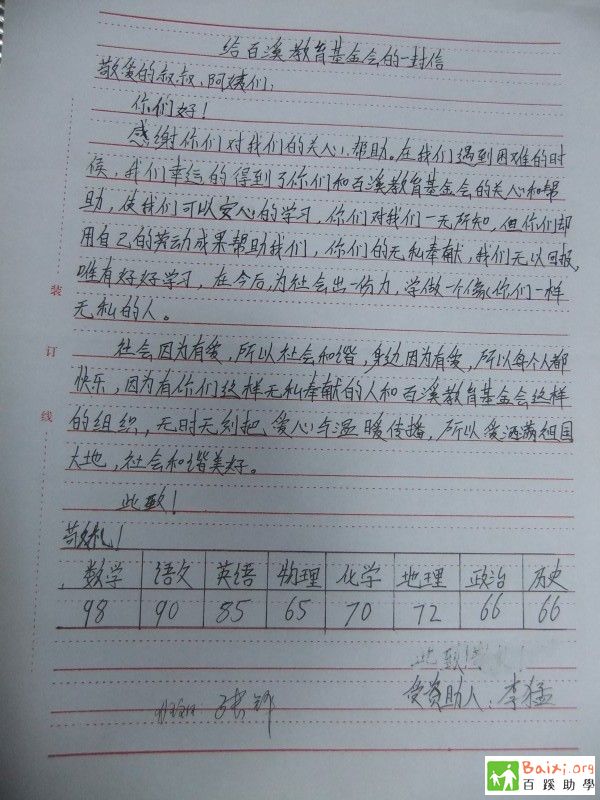 给百溪教育基金会的一封信
敬爱的叔叔、阿姨们:
你们好!
感谢你们对我们的关心、帮助。在我们遇到困难的时
候,我们幸运的得到了你们和百溪教育基金会的关心和帮
助,使我们可以安心的学习,你们对我们一无所知,但你们却
用自己的劳动成果帮助我们,你们的无私奉献,我们无以回报,
唯有好好学习,在今后,为社会出一份力,学做一个像你们一样
无私的人。
社会因为有爱,所以社会和谐,身边因为有爱,所以每个人都
快乐,因为有你们这样无私奉献的人和百溪教育基金会这样
的组织,无时无刻把爱心与温暖传播,所以爱洒满祖国
大地,社会和谐美好。
此致!
敬礼!
数学 语文 英语 物理 化学 地理 政治 历史
98 90 85 65 70 72 66 66
此致
受资助人:李猛
班主任:
装
订
线
Baixi.org
百蹊助學